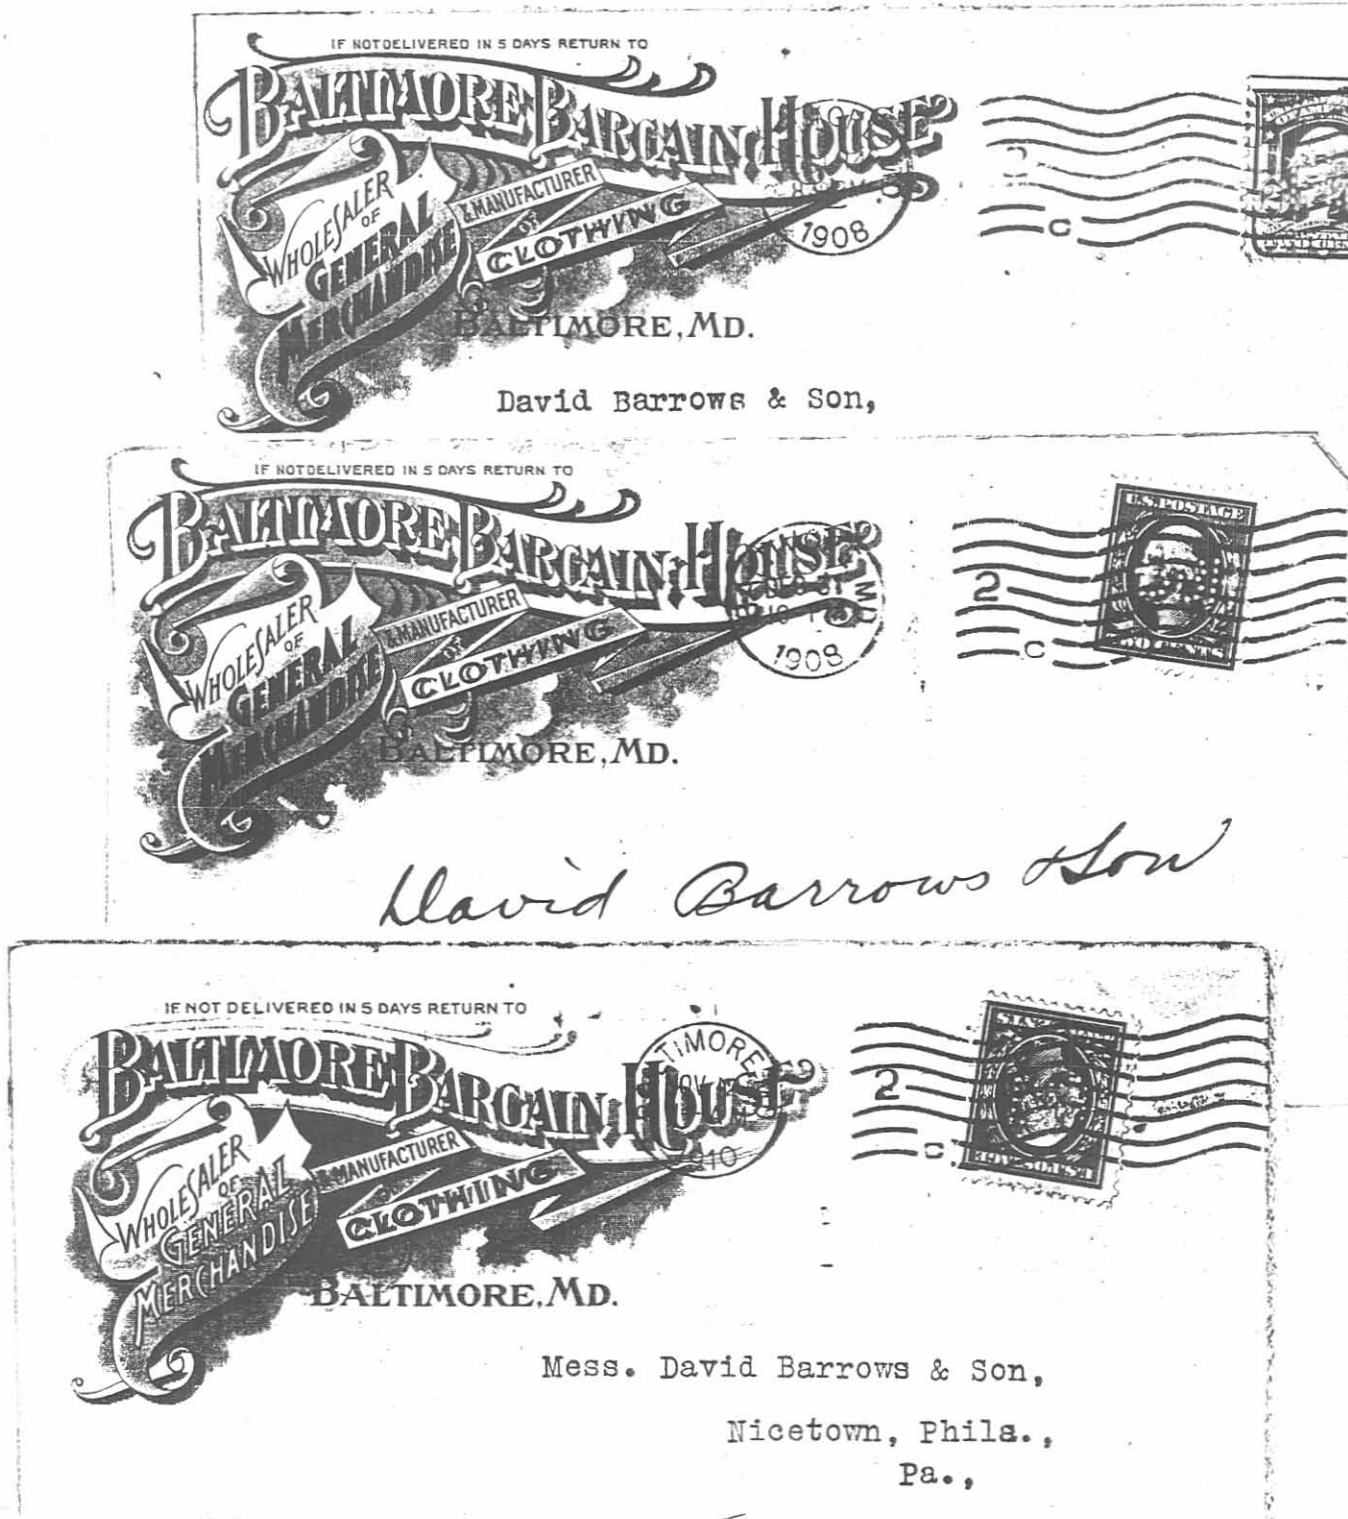 IF NOT DELIVERED IN 5 DAYS RETURN TO
BALTIMORE BARGAIN HOUSE
WHOLESALER
OF
GENERAL
MERCHANDISE
& MANUFACTURER
OF
CLOTHING
1908
C
TWO CEN
BALTIMORE, MD.
David Barrows & Son,
IF NOT DELIVERED IN 5 DAYS RETURN TO
BALTIMORE BARGAIN HOUSE
WHOLESALER
OF
GENERAL
MERCHANDISE
& MANUFACTURER
OF
CLOTHING
DEC 31
MD
1908
2
C
U.S. POSTAGE
TWO CENTS
BALTIMORE, MD.
David Barrows & Son
IF NOT DELIVERED IN 5 DAYS RETURN TO
BALTIMORE BARGAIN HOUSE
WHOLESALER
OF
GENERAL
MERCHANDISE
& MANUFACTURER
OF
CLOTHING
TIMORE
1910
2
C
U.S. POSTAGE
BALTIMORE, MD.
Mess. David Barrows & Son,
Nicetown, Phila.,
Pa.,